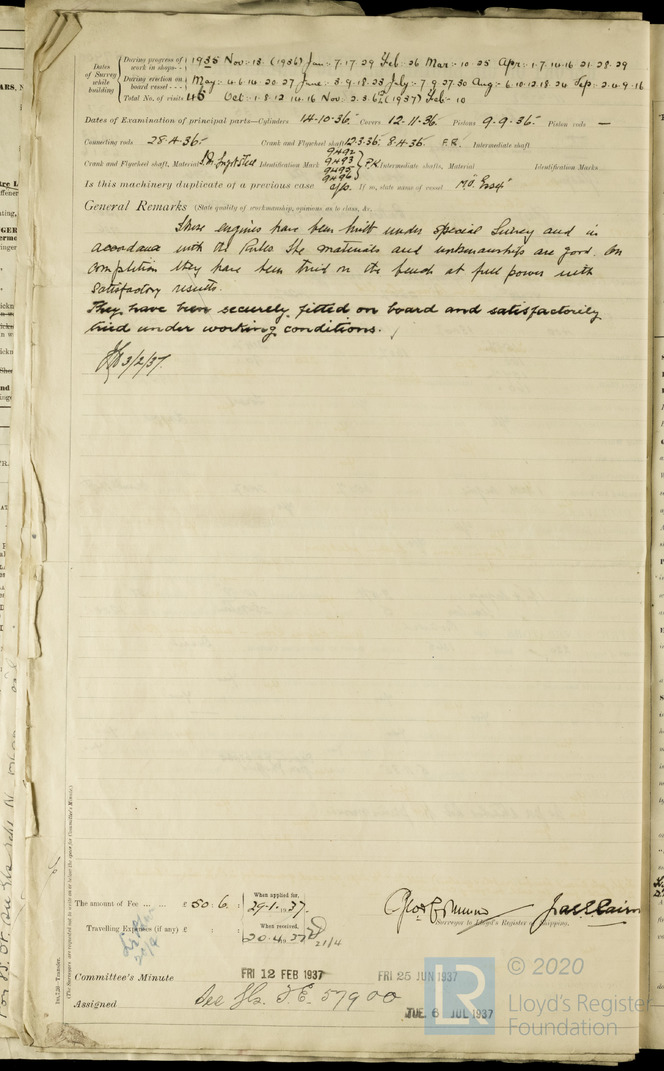 Dates of Survey while building
During progress of work in shops - - 1935 Nov: 18 (1936) Jan: 7.17.29 Feb. 26 Mar: 10.25 Apr: 1.7.14.16.21.28.29
During erection on board vessel - - - May: 4.6.14.20.27 June: 3.9.18.23 July: 7.9.27.30 Aug: 6.10.12.18.26 Sep: 2.4.9.16
Total No. of visits 45 Oct: 1.8.12.14.16 Nov: 2.3.6.12 (1937) Feb. 10
Dates of Examination of principal parts—Cylinders 14-10-36. Covers 12-11-36. Pistons 9-9-36. Piston rods —
Connecting rods 28.4.36. Crank and Flywheel shafts 12.3.36. 8.4.36. F.R. Intermediate shaft
Crank and Flywheel shaft, Material Ingot Steel Identification Mark 9492 9493 9495 9496 Intermediate shafts, Material Identification Marks
Is this machinery duplicate of a previous case If so, state name of vessel
General Remarks (State quality of workmanship, opinions as to class, &c.
These engines have been built under Special Survey and in
accordance with the Rules. The materials and workmanship are good. On
completion they have been tried on the bench at full power with
satisfactory results.
They have been securely fitted on board and satisfactorily
tried under working conditions.
3/2/37.
The amount of Fee ... ... £ 50 : 6. : When applied for, 29.1.1937.
Travelling Expenses (if any) £ : : When received, 20.4.37 21/4
Surveyor to Lloyd's Register of Shipping.
Committee's Minute FRI 12 FEB 1937 FRI 25 JUN 1937
Assigned See Gls. F.E. 57900
TUE. 6 JUL 1937
(The Surveyors are requested not to write on or below the space for Committee's Minute.)
© 2020
LR
Lloyd's Register
Foundation